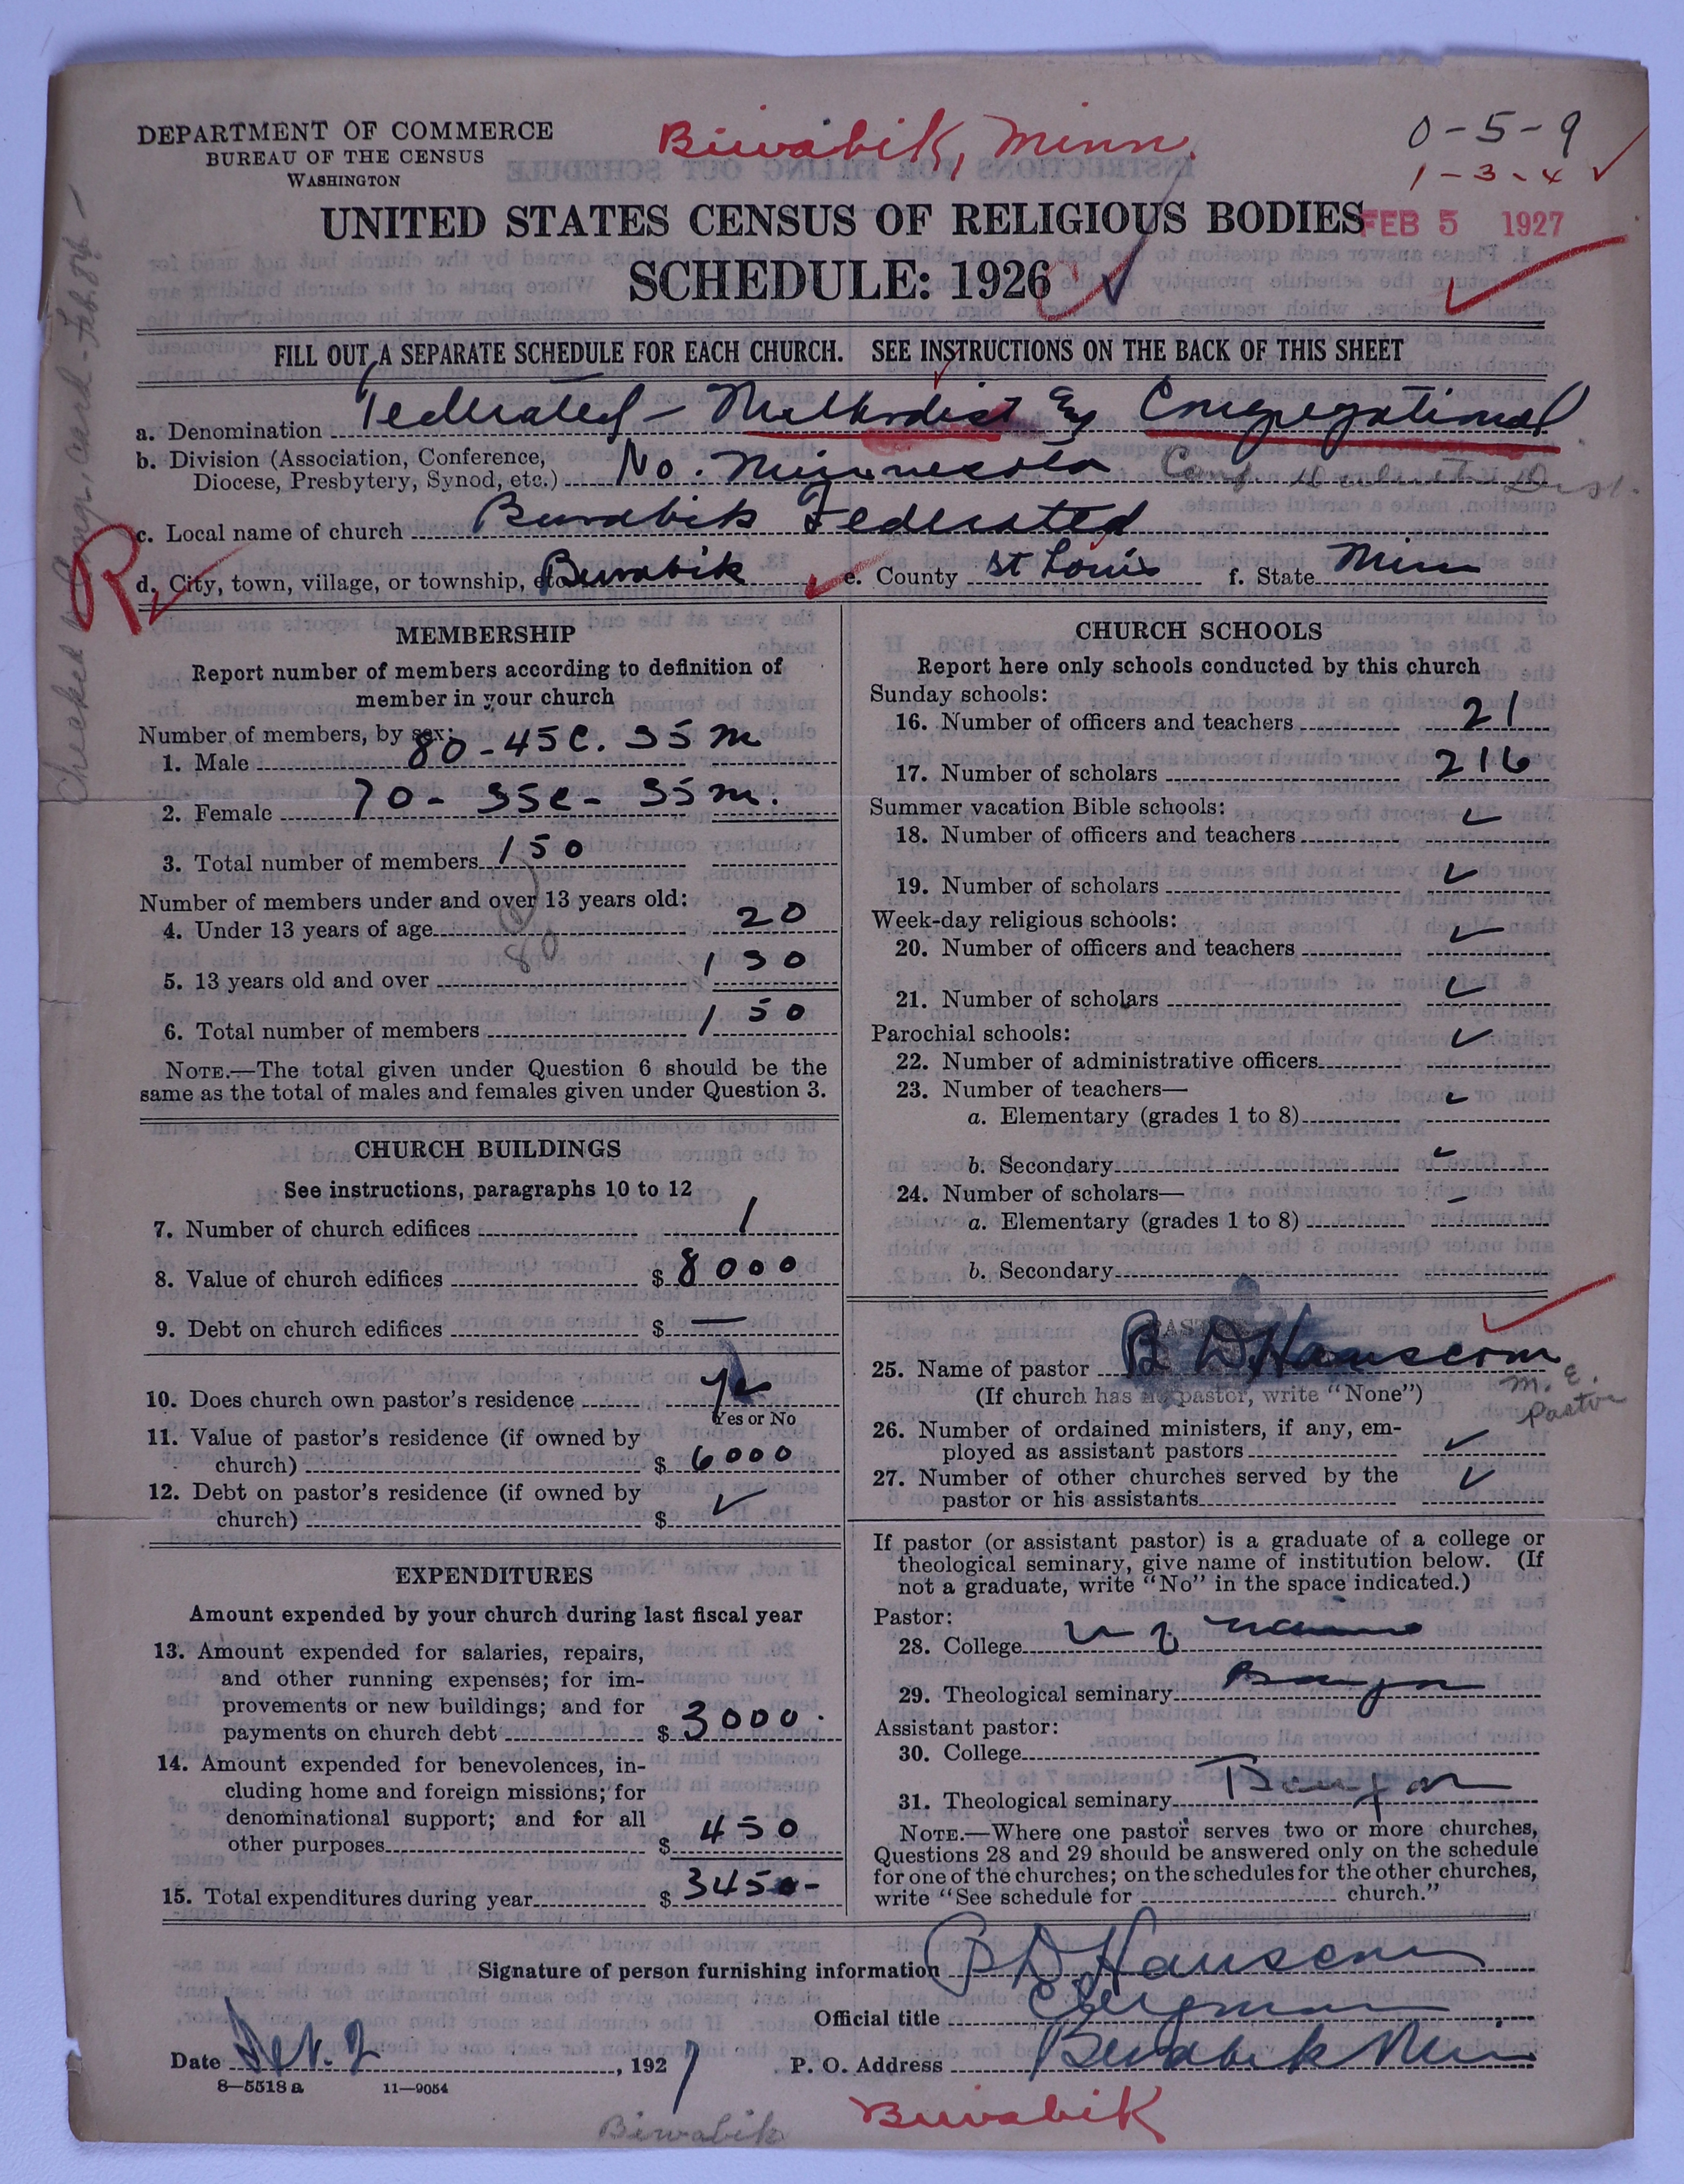 DEPARTMENT OF COMMERCE
BUREAU OF THE CENSUS
WASHINGTON
Biwabik, Minn.
0-5-9
1-3-4
UNITED STATES CENSUS OF RELIGIOUS BODIES
FEB 5 1927
SCHEDULE: 1926
FILL OUT A SEPARATE SCHEDULE FOR EACH CHURCH. SEE INSTRUCTIONS ON THE BACK OF THIS SHEET
a. Denomination Federated - Methodist & Congregational
b. Division (Association, Conference,
Diocese, Presbytery, Synod, etc.) No. Minnesota Conf. Duluth Dist.
c. Local name of church Biwabik Federated
d. City, town, village, or township, etc. Biwabik e. County St Louis f. State Minn
R
MEMBERSHIP
Report number of members according to definition of
member in your church
Number of members, by sex:
1. Male 80 - 45 C. 35 m
2. Female 70 - 35 C - 35 m.
3. Total number of members 150
Number of members under and over 13 years old:
4. Under 13 years of age 20
80
5. 13 years old and over 130
6. Total number of members 150
NOTE.—The total given under Question 6 should be the
same as the total of males and females given under Question 3.
CHURCH BUILDINGS
See instructions, paragraphs 10 to 12
7. Number of church edifices 1
8. Value of church edifices $ 8000
9. Debt on church edifices $ —
10. Does church own pastor's residence Yes
Yes or No
11. Value of pastor's residence (if owned by
church) $ 6000
12. Debt on pastor's residence (if owned by
church) $ ✓
EXPENDITURES
Amount expended by your church during last fiscal year
13. Amount expended for salaries, repairs,
and other running expenses; for im-
provements or new buildings; and for
payments on church debt $ 3000
14. Amount expended for benevolences, in-
cluding home and foreign missions; for
denominational support; and for all
other purposes $ 450
15. Total expenditures during year $ 3450-
CHURCH SCHOOLS
Report here only schools conducted by this church
Sunday schools:
16. Number of officers and teachers 21
17. Number of scholars 216
Summer vacation Bible schools:
18. Number of officers and teachers ✓
19. Number of scholars ✓
Week-day religious schools:
20. Number of officers and teachers ✓
21. Number of scholars ✓
Parochial schools:
22. Number of administrative officers ✓
23. Number of teachers—
a. Elementary (grades 1 to 8) ✓
b. Secondary ✓
24. Number of scholars—
a. Elementary (grades 1 to 8) –
b. Secondary
PASTOR
25. Name of pastor B D Hanscom
(If church has no pastor, write "None")
M. E. Pastor
26. Number of ordained ministers, if any, em-
ployed as assistant pastors ✓
27. Number of other churches served by the
pastor or his assistants ✓
If pastor (or assistant pastor) is a graduate of a college or
theological seminary, give name of institution below. (If
not a graduate, write "No" in the space indicated.)
Pastor:
28. College U of Maine
29. Theological seminary Bangor
Assistant pastor:
30. College
31. Theological seminary Bangor
NOTE.—Where one pastor serves two or more churches,
Questions 28 and 29 should be answered only on the schedule
for one of the churches; on the schedules for the other churches,
write "See schedule for church."
Signature of person furnishing information B D Hanscom
Official title Clergman
Date Feb. 2, 1927 P. O. Address Biwabik Minn
8—5518 a 11—9054
Biwabik
Biwabik